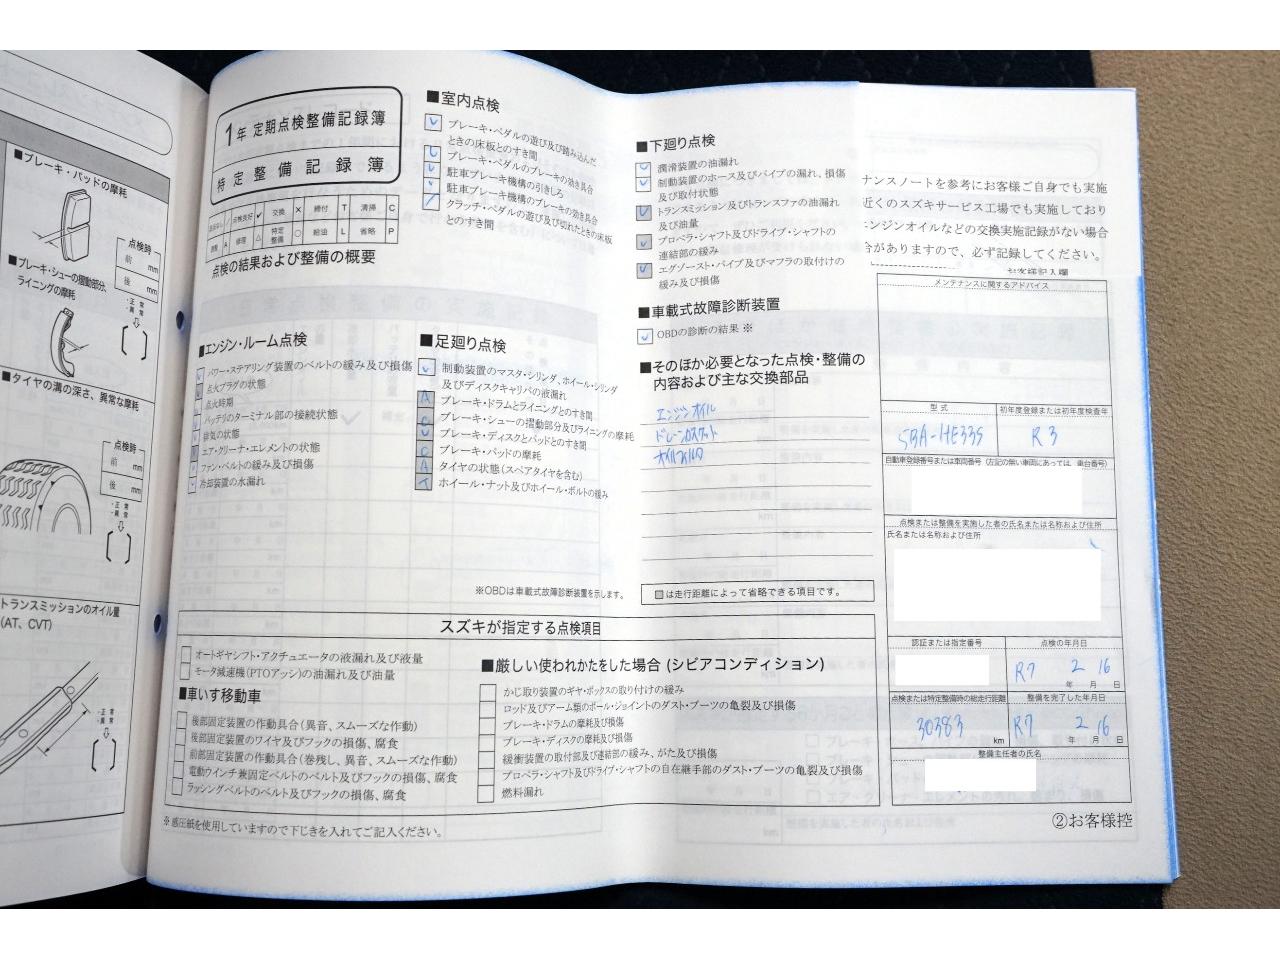 ■ブレーキ・パッドの摩耗
点検時
前 mm
後 mm
・正 常
・異 常
■ブレーキ・シューの摺動部分、
ライニングの摩耗
■タイヤの溝の深さ、異常な摩耗
点検時
前 mm
後 mm
・正 常
・異 常
トランスミッションのオイル量
(AT、CVT)
・正 常
・異 常
1年 定期点検整備記録簿
特定整備記録簿
点検良好 レ 交換 × 締付 T 清掃 C
A 修理 △ 特定整備 ○ 給油 L 省略 P
点検の結果および整備の概要
■室内点検
ブレーキ・ペダルの遊び及び踏み込んだ
ときの床板とのすき間
ブレーキ・ペダルのブレーキの効き具合
駐車ブレーキ機構の引きしろ
駐車ブレーキ機構のブレーキの効き具合
クラッチ・ペダルの遊び及び切れたときの床板
とのすき間
■エンジン・ルーム点検
パワー・ステアリング装置のベルトの緩み及び損傷
点火プラグの状態
点火時期
バッテリのターミナル部の接続状態
排気の状態
エア・クリーナ・エレメントの状態
ファン・ベルトの緩み及び損傷
冷却装置の水漏れ
■足廻り点検
制動装置のマスタ・シリンダ、ホイール・シリンダ
及びディスクキャリパの液漏れ
ブレーキ・ドラムとライニングとのすき間
ブレーキ・シューの摺動部分及びライニングの摩耗
ブレーキ・ディスクとパッドとのすき間
ブレーキ・パッドの摩耗
タイヤの状態(スペアタイヤを含む)
ホイール・ナット及びホイール・ボルトの緩み
※OBDは車載式故障診断装置を示します。
■下廻り点検
潤滑装置の油漏れ
制動装置のホース及びパイプの漏れ、損傷
及び取付状態
トランスミッション及びトランスファの油漏れ
及び油量
プロペラ・シャフト及びドライブ・シャフトの
連結部の緩み
エグゾースト・パイプ及びマフラの取付けの
緩み及び損傷
■車載式故障診断装置
OBDの診断の結果 ※
■そのほか必要となった点検・整備の
内容および主な交換部品
エンジンオイル
ドレーンガスケット
オイルフィルタ
は走行距離によって省略できる項目です。
ナンスノートを参考にお客様ご自身でも実施
近くのスズキサービス工場でも実施しており
エンジンオイルなどの交換実施記録がない場合
合がありますので、必ず記録してください。
お客様記入欄
メンテナンスに関するアドバイス
型 式
5BA-HE33S
初年度登録または初年度検査年
R3
自動車登録番号または車両番号(左記の無い車両にあっては、車台番号)
点検または整備を実施した者の氏名または名称および住所
氏名または名称および住所
認証または指定番号
点検の年月日
R7 2 16
年 月 日
点検または特定整備時の総走行距離
30383 km
整備を完了した年月日
R7 2 16
年 月 日
整備主任者の氏名
スズキが指定する点検項目
オートギヤシフト・アクチュエータの液漏れ及び液量
モータ減速機(PTOアッシ)の油漏れ及び油量
■車いす移動車
後部固定装置の作動具合(異音、スムーズな作動)
後部固定装置のワイヤ及びフックの損傷、腐食
前部固定装置の作動具合(巻残し、異音、スムーズな作動)
電動ウインチ兼固定ベルトのベルト及びフックの損傷、腐食
ラッシングベルトのベルト及びフックの損傷、腐食
■厳しい使われかたをした場合(シビアコンディション)
かじ取り装置のギヤ・ボックスの取り付けの緩み
ロッド及びアーム類のボール・ジョイントのダスト・ブーツの亀裂及び損傷
ブレーキ・ドラムの摩耗及び損傷
ブレーキ・ディスクの摩耗及び損傷
緩衝装置の取付部及び連結部の緩み、がた及び損傷
プロペラ・シャフト及びドライブ・シャフトの自在継手部のダスト・ブーツの亀裂及び損傷
燃料漏れ
※感圧紙を使用していますので下じきを入れてご記入ください。
②お客様控